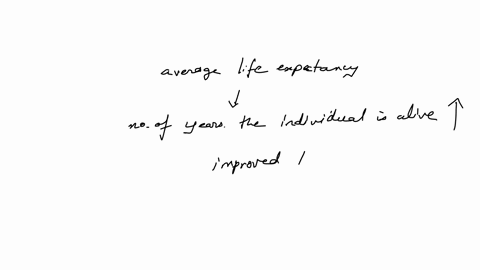 average life expectancy
no. of years. the individual is alive ↑
improved /